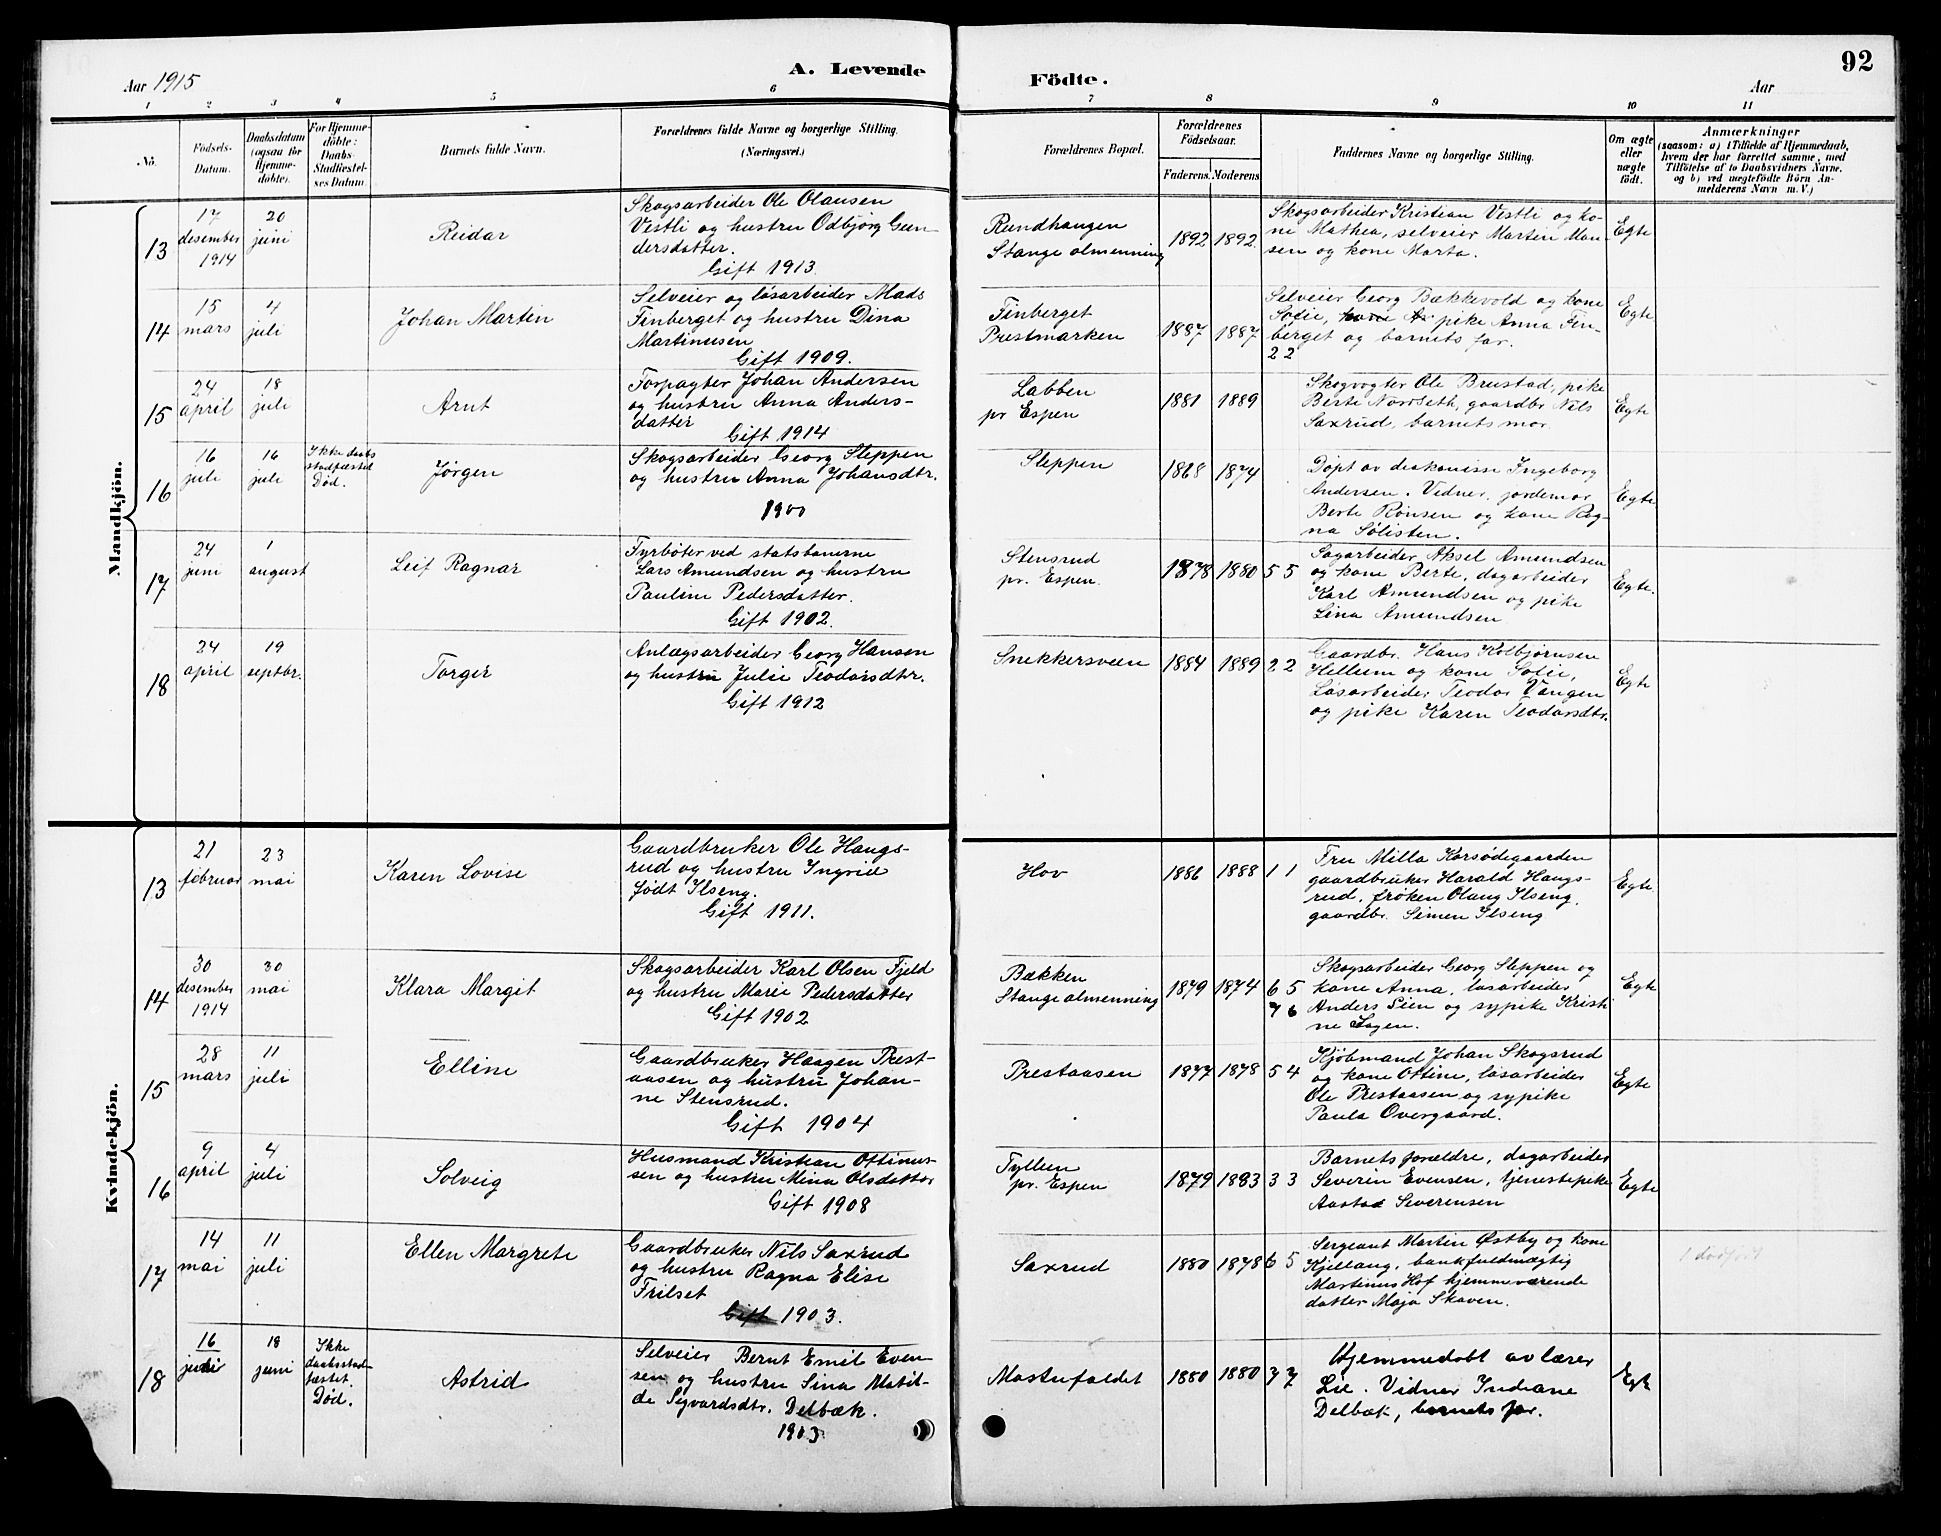 92
Aar 1915
A. Levende
Födte.
Aar
1 2 3 4 5 6 7 8 9 10 11
No.
Födsels-
Datum.
Daabsdatum
(ogsaa for
Hjemme-
döbte).
For Hjemme-
döbte:
Daabs-
Stadfæstel-
ses Datum.
Barnets fulde Navn.
Forældrenes fulde Navne og borgerlige Stilling.
(Næringsvei.)
Forældrenes Bopæl.
Forældrenes
Födselsaar.
Faderens. Moderens.
Faddernes Navne og borgerlige Stilling.
Om ægte
eller
uægte
födt.
Anmærkninger
(saasom: a) i Tilfælde af Hjemmedaab,
hvem der har forrettet samme, med
Tilföielse af to Daabsvidners Navne,
og b) ved uægtefödte Börn An-
melderens Navn m. V.)
Mandkjön.
13
17
desember
1914
20
juni
Reidar
Skogsarbeider Ole Olausen
Vestli og hustru Odbjørg Gun-
dersdatter.
Gift 1913.
Rundhaugen
Stange almenning
1892 1892
Skogsarbeider Kristian Vestli og ko-
ne Mathea, selveier Martin Man-
sen og kone Marta.
Egte
14
15
mars
4
juli
Johan Martin
Selveier og løsarbeider Mads
Finberget og hustru Dina
Martinusen
Gift 1909.
Finberget
Prestmarken
1887 1887
Selveier Georg Bækkevold og kone
Sofie, pike Anna Fin-
berget og barnets far.
2 2
Egte
15
24
april
18
juli
Arnt
Forpagter Johan Andersen
og hustru Anna Anders-
datter
Gift 1914
Labben
pr Espen
1881 1889
Skogvogter Ole Brustad, pike
Berte Nordseth, gaardbr. Nils
Saxrud, barnets mor.
Egte
16
16
juli
16
juli
Ikke daabs
stadfæstet
Død.
Jørgen
Skogsarbeider Georg Sleppen
og hustru Anna Johansdtr.
1900
Sleppen
1868 1874
Døpt av diakonisse Ingeborg
Andersen. Vidner, jordemor
Berte Rønsen og kone Rag-
na Sølisten.
Egte
17
24
juni
1
august
Leif Ragnar
Fyrbøter ved statsbanerne
Lars Amundsen og hustru
Pauline Pedersdatter.
Gift 1902.
Stensrud
pr. Espen.
1878 1880 5 5
Sagarbeider Aksel Amundsen
og kone Berte, dagarbeider
Karl Amundsen og pike
Lina Amundsen
Egte.
18
24
april
19
septbr.
Torger
Anlægsarbeider Georg Hansen
og hustru Julie Teodorsdtr.
Gift 1912
Snekkersveen
1884 1889 2 2
Gaardbr. Hans Kolbjørnsen
Hellum og kone Sofie,
Løsarbeider Teodor Vangen
og pike Karen Teodorsdtr.
Egte
Kvindekjön.
13
21
februar
23
mai
Karen Lovise
Gaardbruker Ole Haugs-
rud og hustru Ingrid
født Ilseng.
Gift 1911.
Hov
1886 1888 1 1
Fru Milla Korsødegaarden
gaardbruker Harald Haugs-
rud, frøken Olaug Ilseng,
gaardbr. Simen Ilseng
Egte
14
30
desember
1914
30
mai
Klara Margit
Skogsarbeider Karl Olsen Fjeld
og hustru Marie Pedersdatter
Gift 1902
Bækken
Stange almenning
1879 1874 6 5
7 6
Skogsarbeider Georg Sleppen og
kone Anna, løsarbeider
Anders Lien og sypike Kristi
ne Hagen.
Egte
15
28
mars
11
juli
Elline
Gaardbruker Haagen Prest-
aasen og hustru Johan-
ne Stensrud.
Gift 1904
Prestaasen
1877 1878 5 4
Kjøbmand Johan Skogsrud
og kone Ottine, løsarbeider
Ole Prestaasen og sypike
Paula Overgaard.
Egte
16
9
april
4
juli
Solveig
Husmand Kristian Ottinus-
sen og hustru Mina Olsdatter
Gift 1908
Tyllien
pr. Espen
1879 1883 3 3
Barnets forældre, dagarbeider
Severin Evensen, tjenestepike
Aasta Severensen
Egte
17
14
mai
11
juli
Ellen Margrete
Gaardbruker Nils Saxrud
og hustru Ragna Elise
Frilset
Gift 1903.
Saxrud
1880 1878 6 5
Sergeant Martin Østby og kone
Kjellaug, bankfuldmægtig
Martinus Hof hjemmeværende
datter Maja Skaven.
1 dødfødt
18
16
juni
18
juni
Ikke
daabsstad-
fæstet.
Død.
Astrid
Selveier Bernt Emil Even-
sen og hustru Sina Matil-
de Sigvardsdtr. Delbæk.
1903
Mostufaldet
1880 1880 7 7
Hjemmedøbt av lærer
Lie. Vidner Indiane
Delbæk, barnets far.
Egte